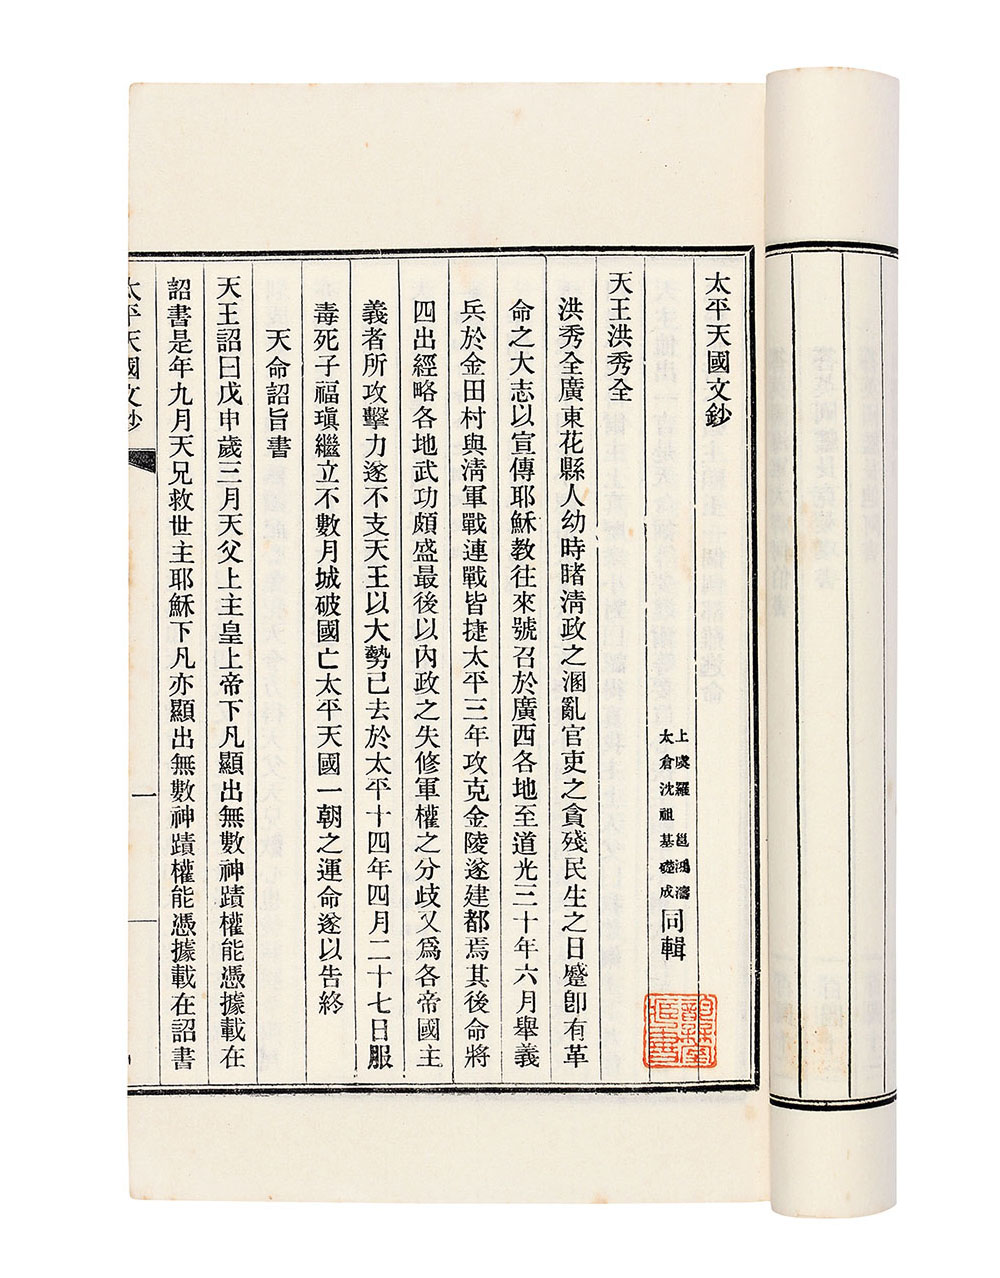 太平天國文鈔
上虞羅邕鴻濤
太倉沈祖基礎成
同輯
天王洪秀全
洪秀全廣東花縣人幼時睹淸政之溷亂官吏之貪殘民生之日蹙卽有革
命之大志以宣傳耶穌敎往來號召於廣西各地至道光三十年六月舉義
兵於金田村與淸軍戰連戰皆捷太平三年攻克金陵遂建都焉其後命將
四出經略各地武功頗盛最後以內政之失修軍權之分歧又爲各帝國主
義者所攻擊力遂不支天王以大勢已去於太平十四年四月二十七日服
毒死子福瑱繼立不數月城破國亡太平天國一朝之運命遂以告終
天命詔旨書
天王詔曰戊申歲三月天父上主皇上帝下凡顯出無數神蹟權能憑據載在
詔書是年九月天兄救世主耶穌下凡亦顯出無數神蹟權能憑據載在詔書
太平天國文鈔
一